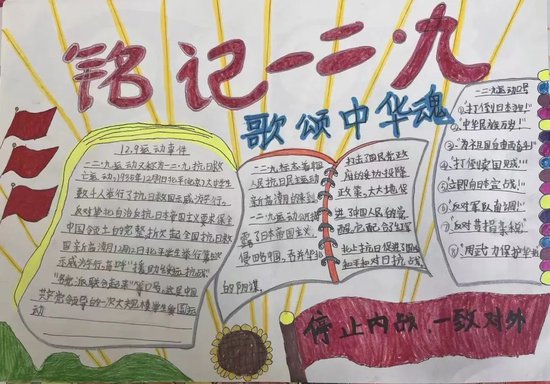 铭记一二·九
歌颂中华魂
12.9运动事件
一二·九运动又称为一二·九抗日救
亡运动,1935年12月9日北平(北京)大中学生
数千人举行了抗日救国示威游行。
反对华北自治反抗日本帝国主义要求保全
中国领土的完整掀起全国抗日救
国新高潮12月2日北平学生举行第
示威游行高呼"援助绥远抗战"
"各党派联合起来"等口号这是中国
共产党领导的一次大规模学生爱国运
动
一二·九标志着
人民抗日民主运动
新高潮的
一二·九运动公开揭
露了日本帝国主义
侵略中国,吞并华北
的阴谋
打击了国民党政
府的妥协投降
政策,大大地促
进了中国人民的觉
醒它配合红军
北上抗日促进了国
内和平和对日抗战
一二·九运动口号
①"打倒日本
②"中华民族万岁!"
③"为祖国自由而奋斗!"
④"打倒卖国贼!"
⑤立即向日本宣战!
⑥"反对军队南调!"
⑦"反对
⑧"用武力保护华北!
停止内战,一致对外